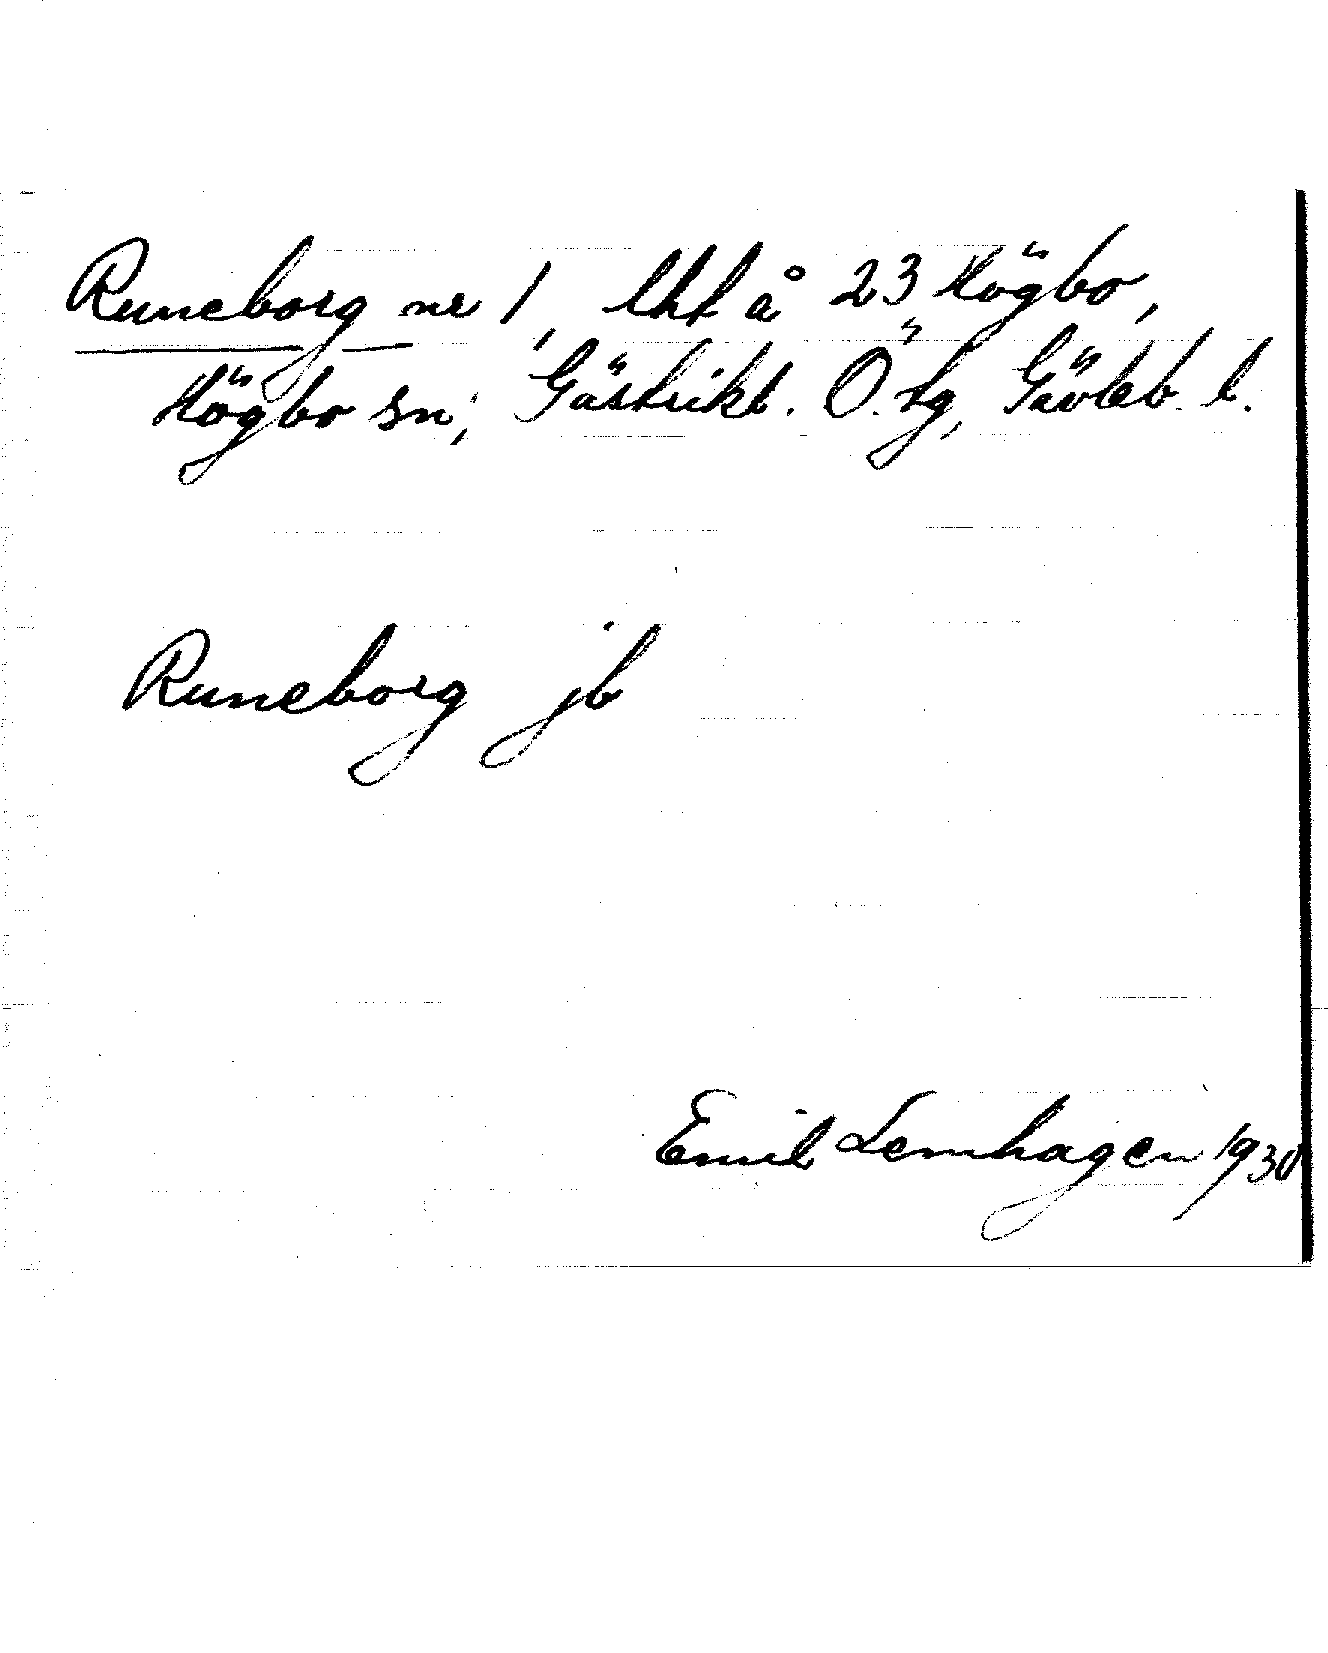 Runeborg nr 1, lht å 23 Högbo,
Högbo sn, Gästrikl. Ö. tg, Gävleb. l.
Runeborg jb
Emil Lemhagen 1930